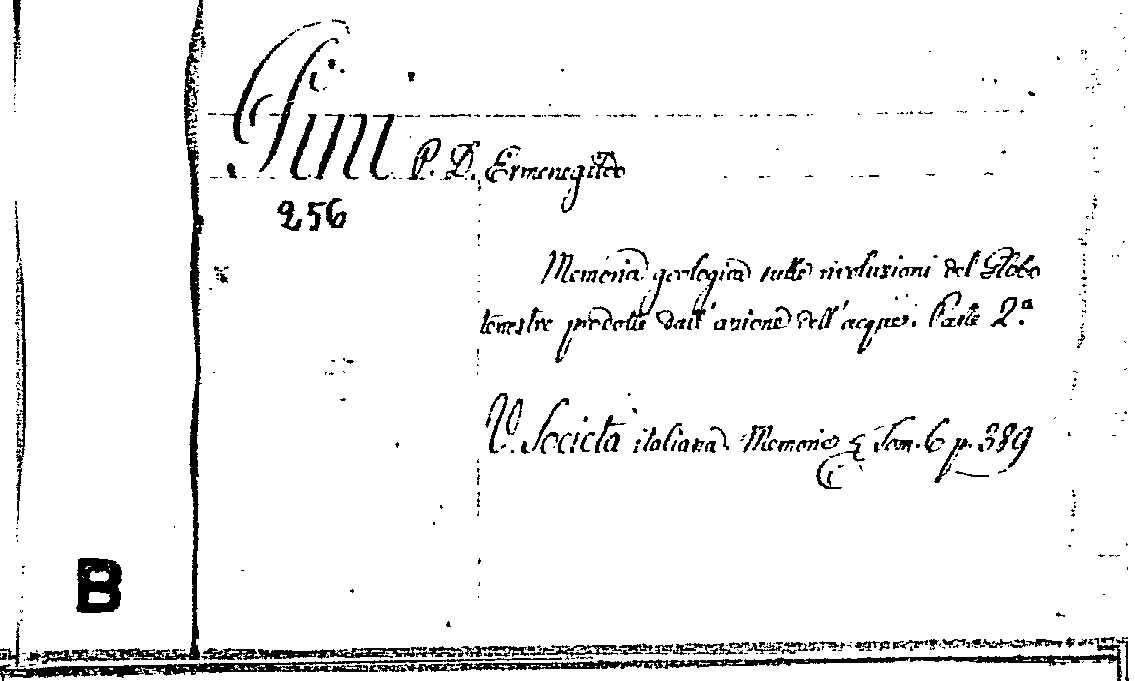 Pini P. D. Ermenegildo
256
Memoria geologica sulle rivoluzioni del Globo
terrestre prodotte dall'azione dell'acque. Parte 2.a
V. Società italiana. Memorie & Tom. 6 p. 389
B